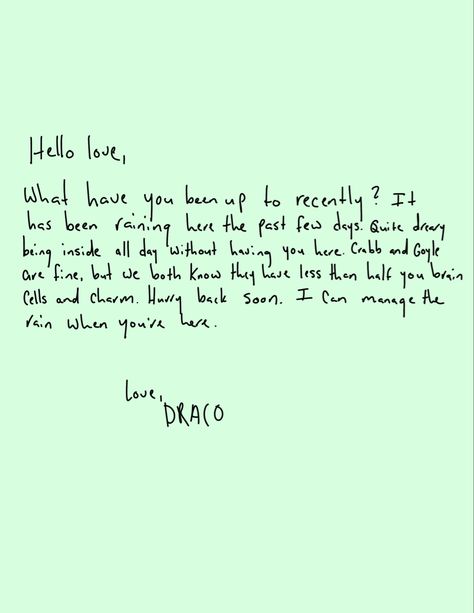 Hello love,
What have you been up to recently? It
has been raining here the past few days. Quite dreary
being inside all day without having you here. Crabb and Goyle
are fine, but we both know they have less than half you brain
cells and charm. Hurry back soon. I can manage the
rain when you're here.
love,
DRACO